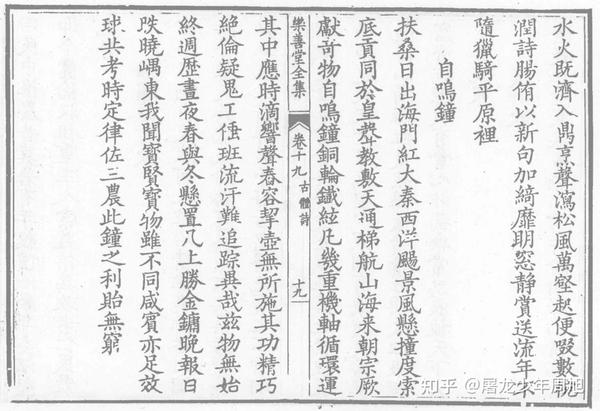 水火既濟入鼎烹聲瀉松風萬壑起便啜數甌
潤詩腸侑以新句加綺靡明窓靜賞送流年不
隨獵騎平原裡
自鳴鐘
扶桑日出海門紅大秦西洋颺景風懸撞度索
底貢同於皇聲教敷天通梯航山海来朝宗厥
獻奇物自鳴鐘銅輪鐵絃凡幾重機軸循環運
樂善堂全集
卷十九 古體詩
十九
其中應時滴響聲舂容挈壺無所施其功精巧
絕倫疑鬼工倕班流汗難追踪異哉兹物無始
終週歷晝夜春與冬懸置几上勝金鏞晚報日
昳曉嵎東我聞寳賢寳物雖不同咸賓亦足效
球共考時定律佐三農此鐘之利貽無窮
知乎 @屠龙少年